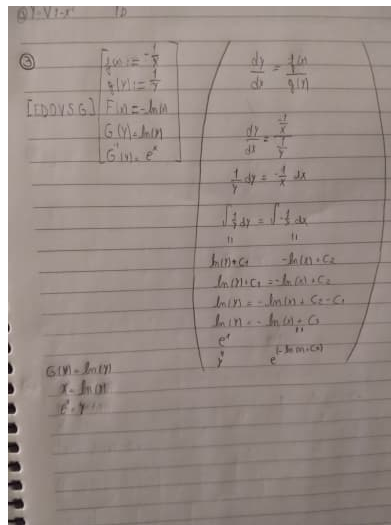 ③
f(x) = -1/x
g(y) = 1/y
[EDOVSG] F(x) = -ln(x)
G(y) = ln(y)
G⁻¹(x) = eˣ
dy/dx = f(x)/g(y)
dy/dx = (-1/x)/(1/y)
1/y dy = -1/x dx
∫ 1/y dy = ∫ -1/x dx
ln(y)+C₁ -ln(x)+C₂
ln(y)+C₁ = -ln(x)+C₂
ln(y) = -ln(x)+C₂-C₁
ln(y) = -ln(x)+C₃
y e^(-ln(x)+C₃)
G(y) = ln(y)
x = ln(y)
eˣ = y